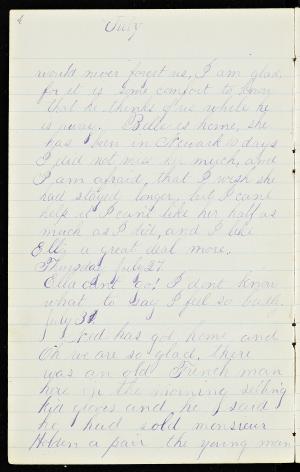 July
would never forget us, I am glad
for it is some comfort to know
that he thinks of us while he
is away. Belle is home, she
has been in Newark 10 days
I did not miss her much, and
I am afraid, that I wish she
had stayed longer, but I cant
help it I cant like her half as
much as I did, and I like
Ella a great deal more.
Thursday July 27.
Ella cant go! I dont know
what to say I feel so badly.
July 31.
kid has got home and
Oh we are so glad. There
was an old French man
here in the morning selling
kid gloves and he said
he had sold monsieur
Holden a pair the young man